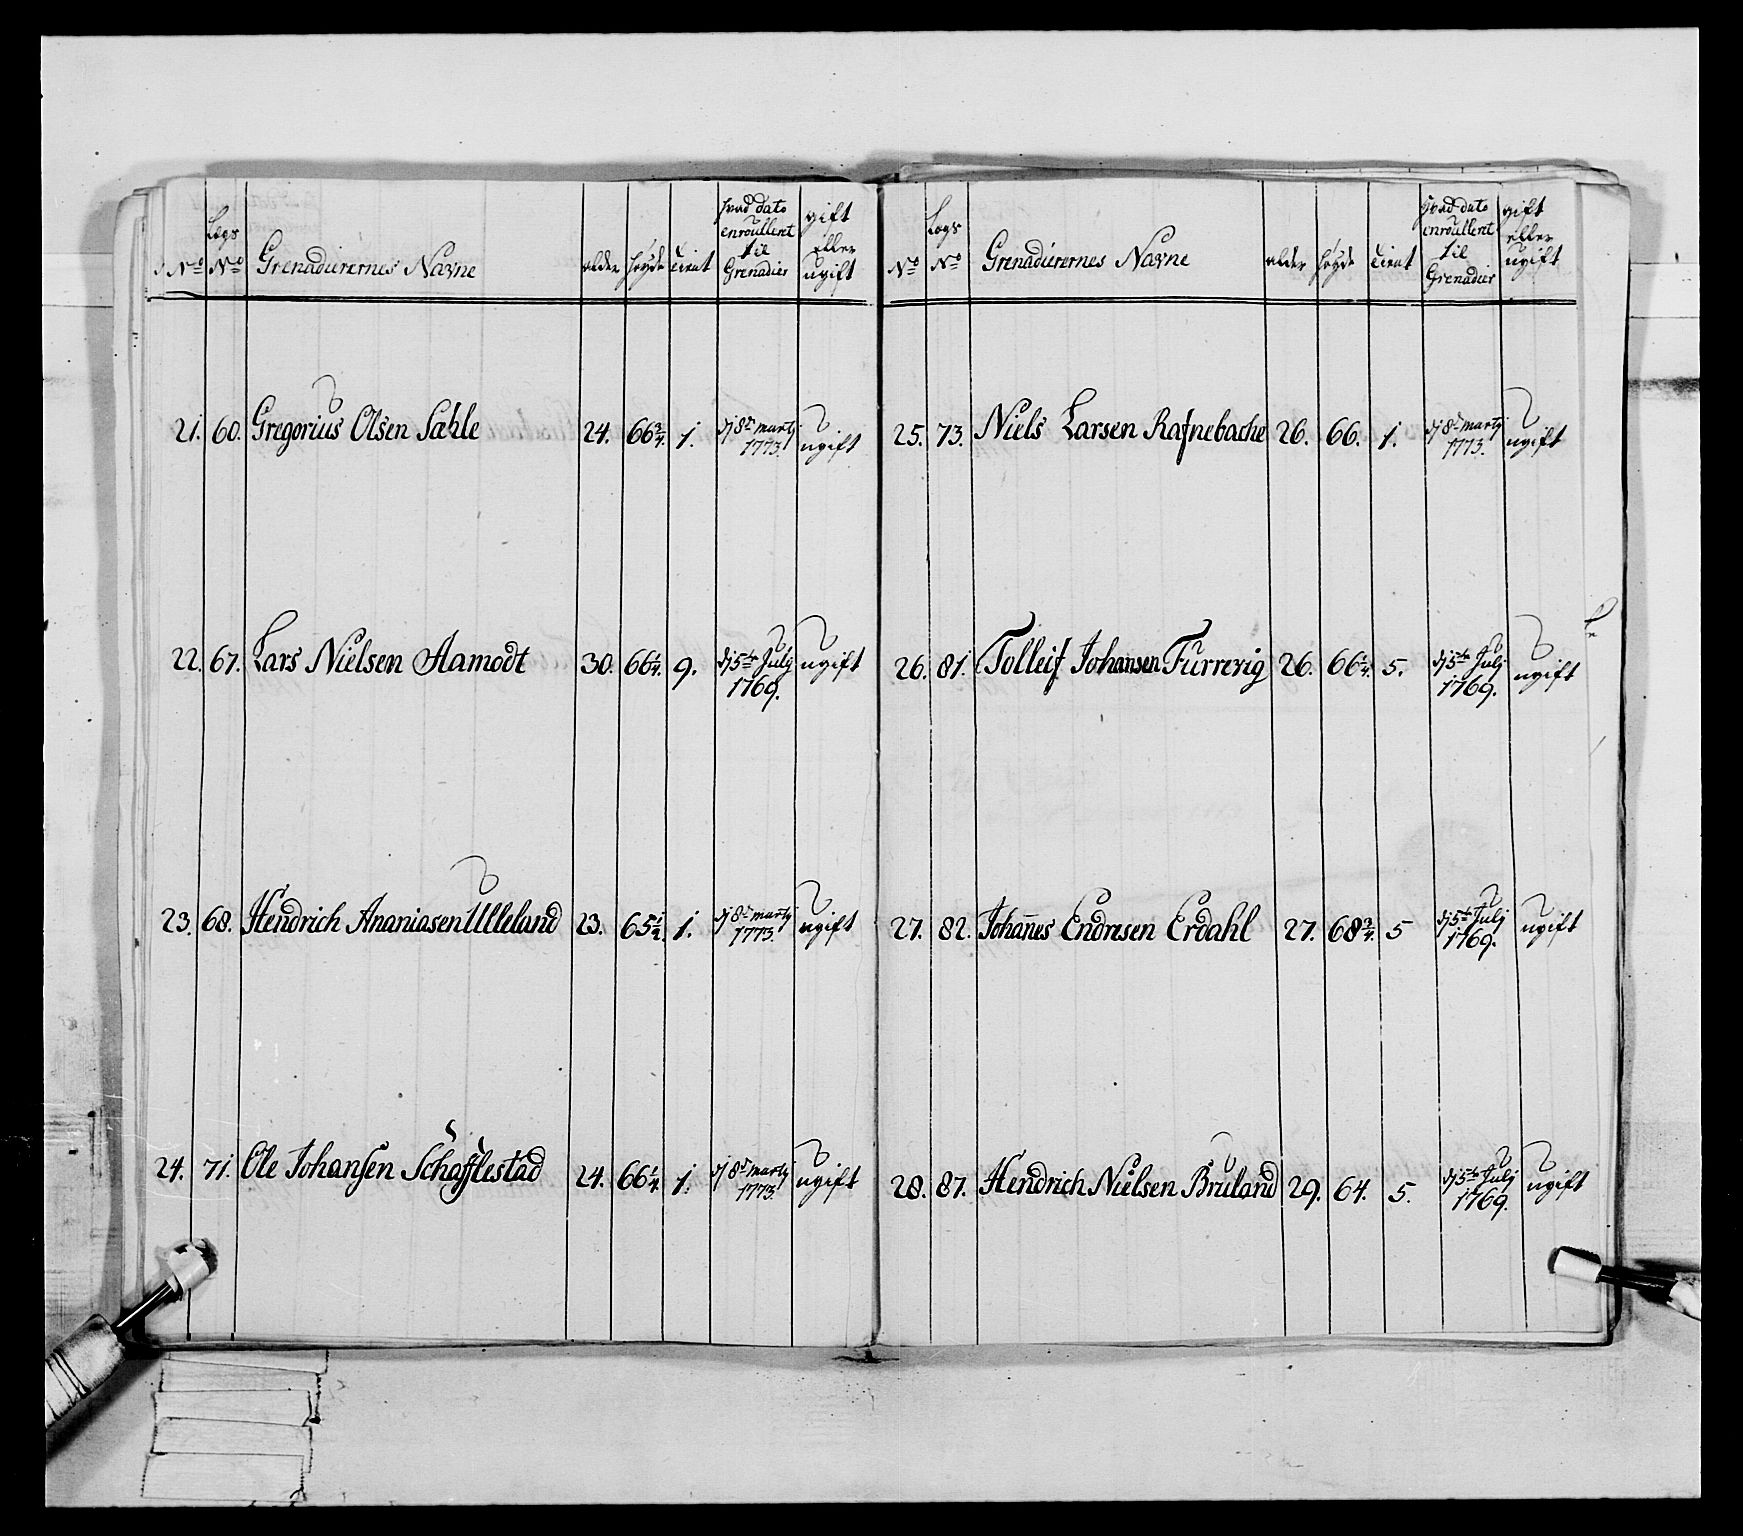 No Legs No Grenadierernes Navne alder høyde tient hvad dato enroullert til Grenadier gift eller ugift
21. 60. Gregorius Olsen Sæhle 24. 66 3/4. 1. dj 8de marty 1773. ugift
22. 67. Lars Nielsen Aamodt 30. 66 1/4. 9. dj 5te July 1769. ugift
23. 68. Hendrich Ananiasen Ulleland 23. 65 1/2. 1. dj 8de marty 1773. ugift
24. 71. Ole Johansen Schafflestad 24. 66 1/4. 1. dj 8de marty 1773 ugift
No Legs No Grenadierernes Navne alder høyde tient hvad dato enroullert til Grenadier gift eller ugift
25. 73. Niels Larsen Rafnebache 26. 66. 1. dj 8de marty 1773. ugift
26. 81. Tolleif Johansen Furrevig 26. 66 1/4. 5. dj 5te July 1769. ugift
27. 82. Johan̄es Endresen Erdahl 27. 68 3/4. 5 dj 5te July 1769. ugift
28. 87. Hendrich Nielsen Bruland 29. 64. 5. dj 5te July 1769. ugift